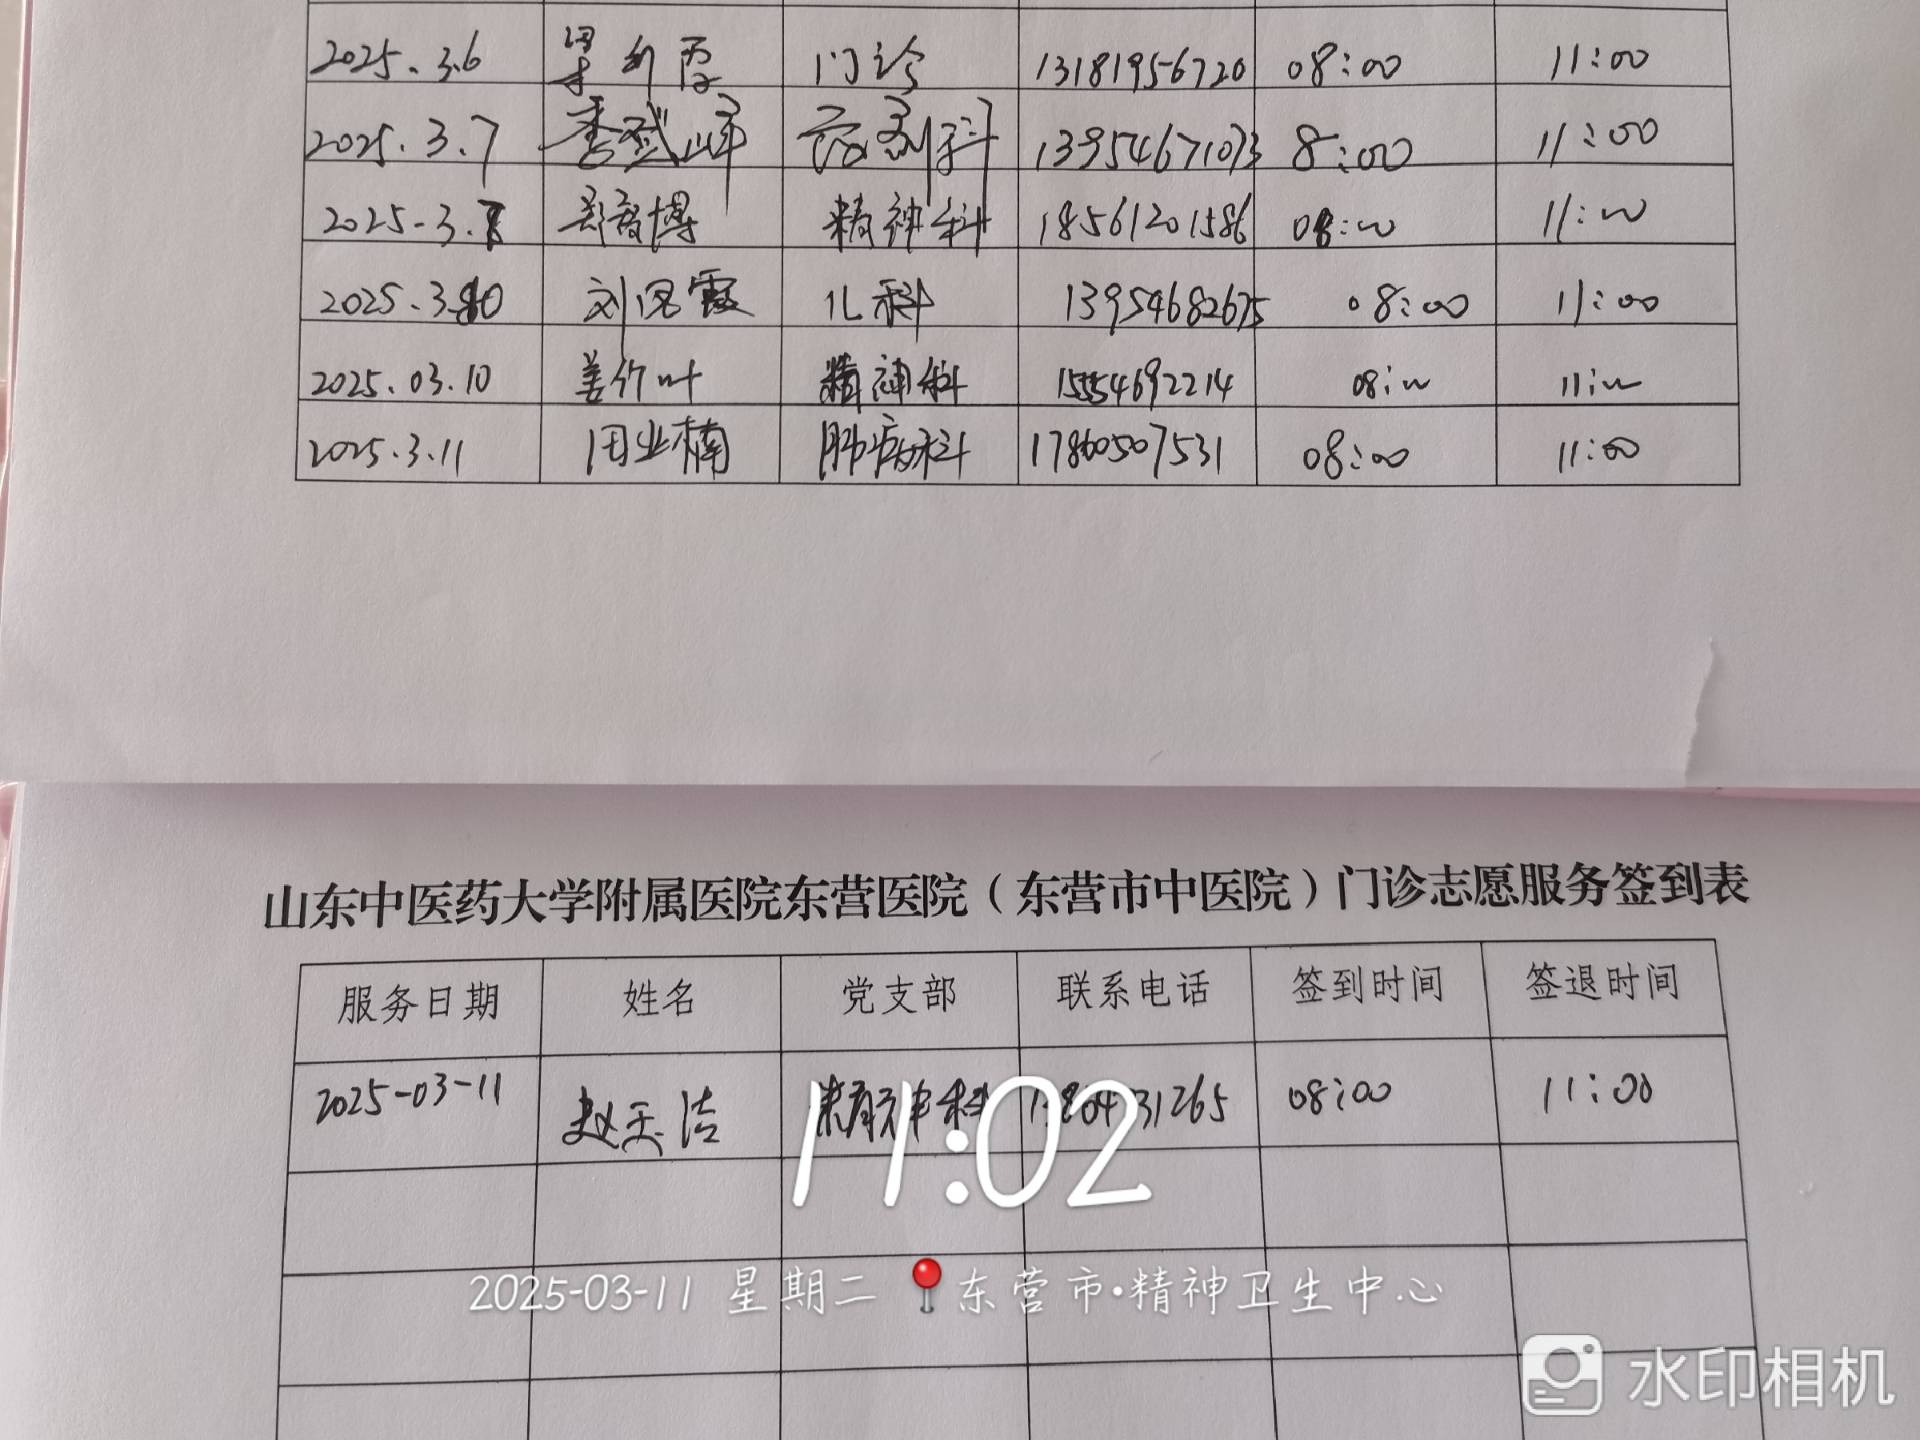 2025.3.6 门诊 13181956720 08:00 11:00
2025.3.7 药剂科 13954671073 8:00 11:00
2025-3.7 博 精神科 18561201586 08:00 11:00
2025.3.10 刘 霞 儿科 13954682675 08:00 11:00
2025.03.10 姜竹叶 精神科 15554692214 08:00 11:00
2025.3.11 周业楠 肺病科 17860507531 08:00 11:00
山东中医药大学附属医院东营医院（东营市中医院）门诊志愿服务签到表
服务日期 姓名 党支部 联系电话 签到时间 签退时间
2025-03-11 赵天洁 精神科 08:00 11:00
11:02
2025-03-11 星期二 东营市·精神卫生中心
水印相机